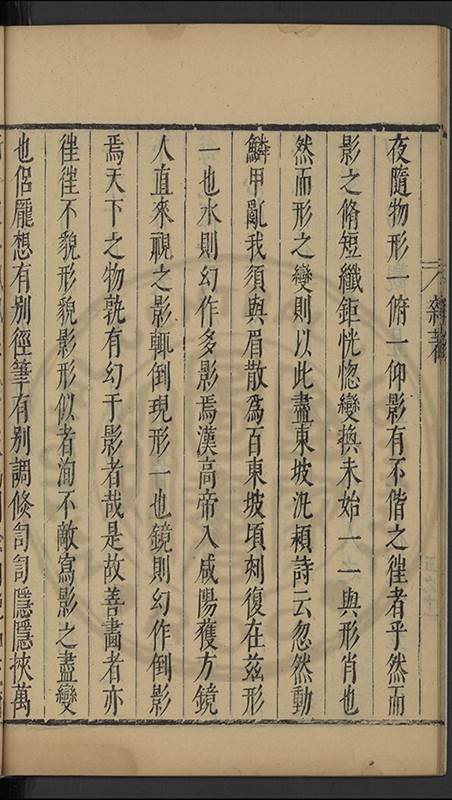 夜隨物形一俯一仰影有不偕之徃者乎然而
影之脩短纖鉅恍惚變換未始一一與形肖也
然而形之變則以此盡東坡汎頴詩云忽然動
鱗甲亂我須與眉散爲百東坡頃刻復在茲形
一也水則幻作多影焉漢高帝入咸陽獲方鏡
人直來視之影輒倒現形一也鏡則幻作倒影
焉天下之物孰有幻于影者哉是故善畵者亦
徃徃不貌形貌影形似者洵不敵寫影之盡變
也侶龎想有别徑筆有别調倏訇訇隱隱挾萬